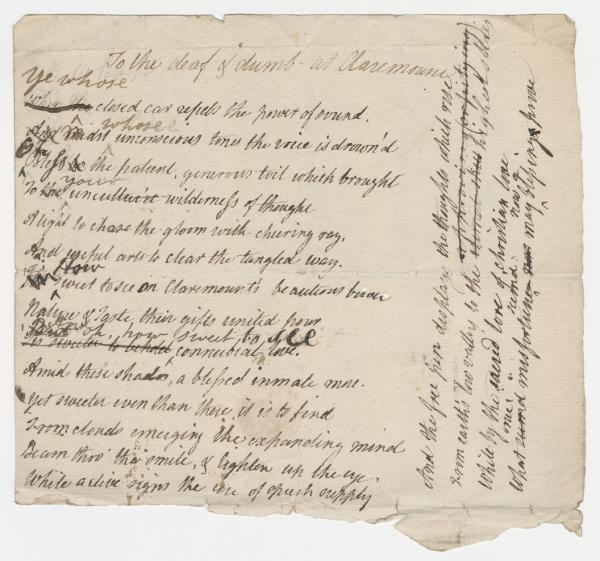 To the deaf & dumb at Claremount
Ye whose
When the closed ear repels the power of sound,
whose
And midst unconscious tones the voice is drown'd
Bless the patient, generous toil which brought
your
To the uncultur'd wilderness of thought
A light to chase the gloom with cheering ray,
And useful arts to clear the tangled way.
How
Sweet to see in Claremount's beauteous bower
Nature & Taste, their gifts united pour
But oh, how sweet, to
is sweeter to behold connubial love.
Amid these shades, a blessed inmate move.
Yet sweeter even than these it is to find
From clouds emerging the expanding mind
Beam thro' the smile, & lighten up the eye,
While active signs the use of speech supply
And the free pen displays the thoughts which rise
From earth's low valley to the highest skies
While by the sacred lore of christian love
What misfortune may blessing prove